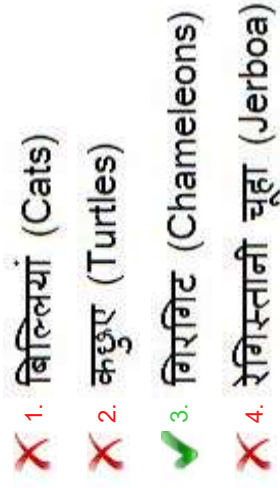 1. बिल्लियां (Cats)
2. कछुए (Turtles)
3. गिरगिट (Chameleons)
4. रेगिस्तानी चूहा (Jerboa)